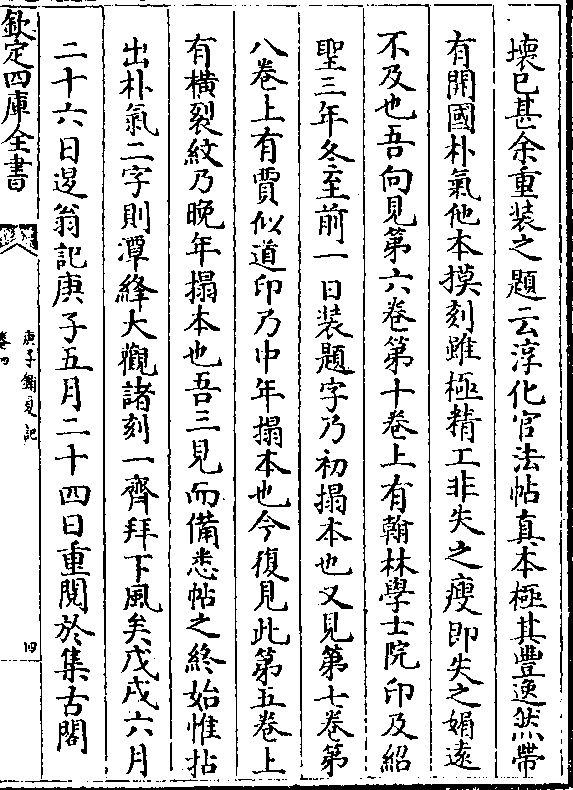 壊已甚余重装之題云淳化官法帖真本極其豐逸然帶
有開國朴氣他本摸刻雖極精工非失之瘦即失之媚遠
不及也吾向見第六卷第十卷上有翰林學士院印及紹
聖三年冬至前一日装題字乃初搨本也又見第七卷第
八卷上有賈似道印乃中年搨本也今復見此第五卷上
有橫裂紋乃晚年搨本也吾三見而備悉帖之終始惟拈
出朴氣二字則潭絳大觀諸刻一齊拜下風矣戊戌六月
二十六日退翁記庚子五月二十四日重閲於集古閣
欽定四庫全書
庚子銷夏記
卷四
四